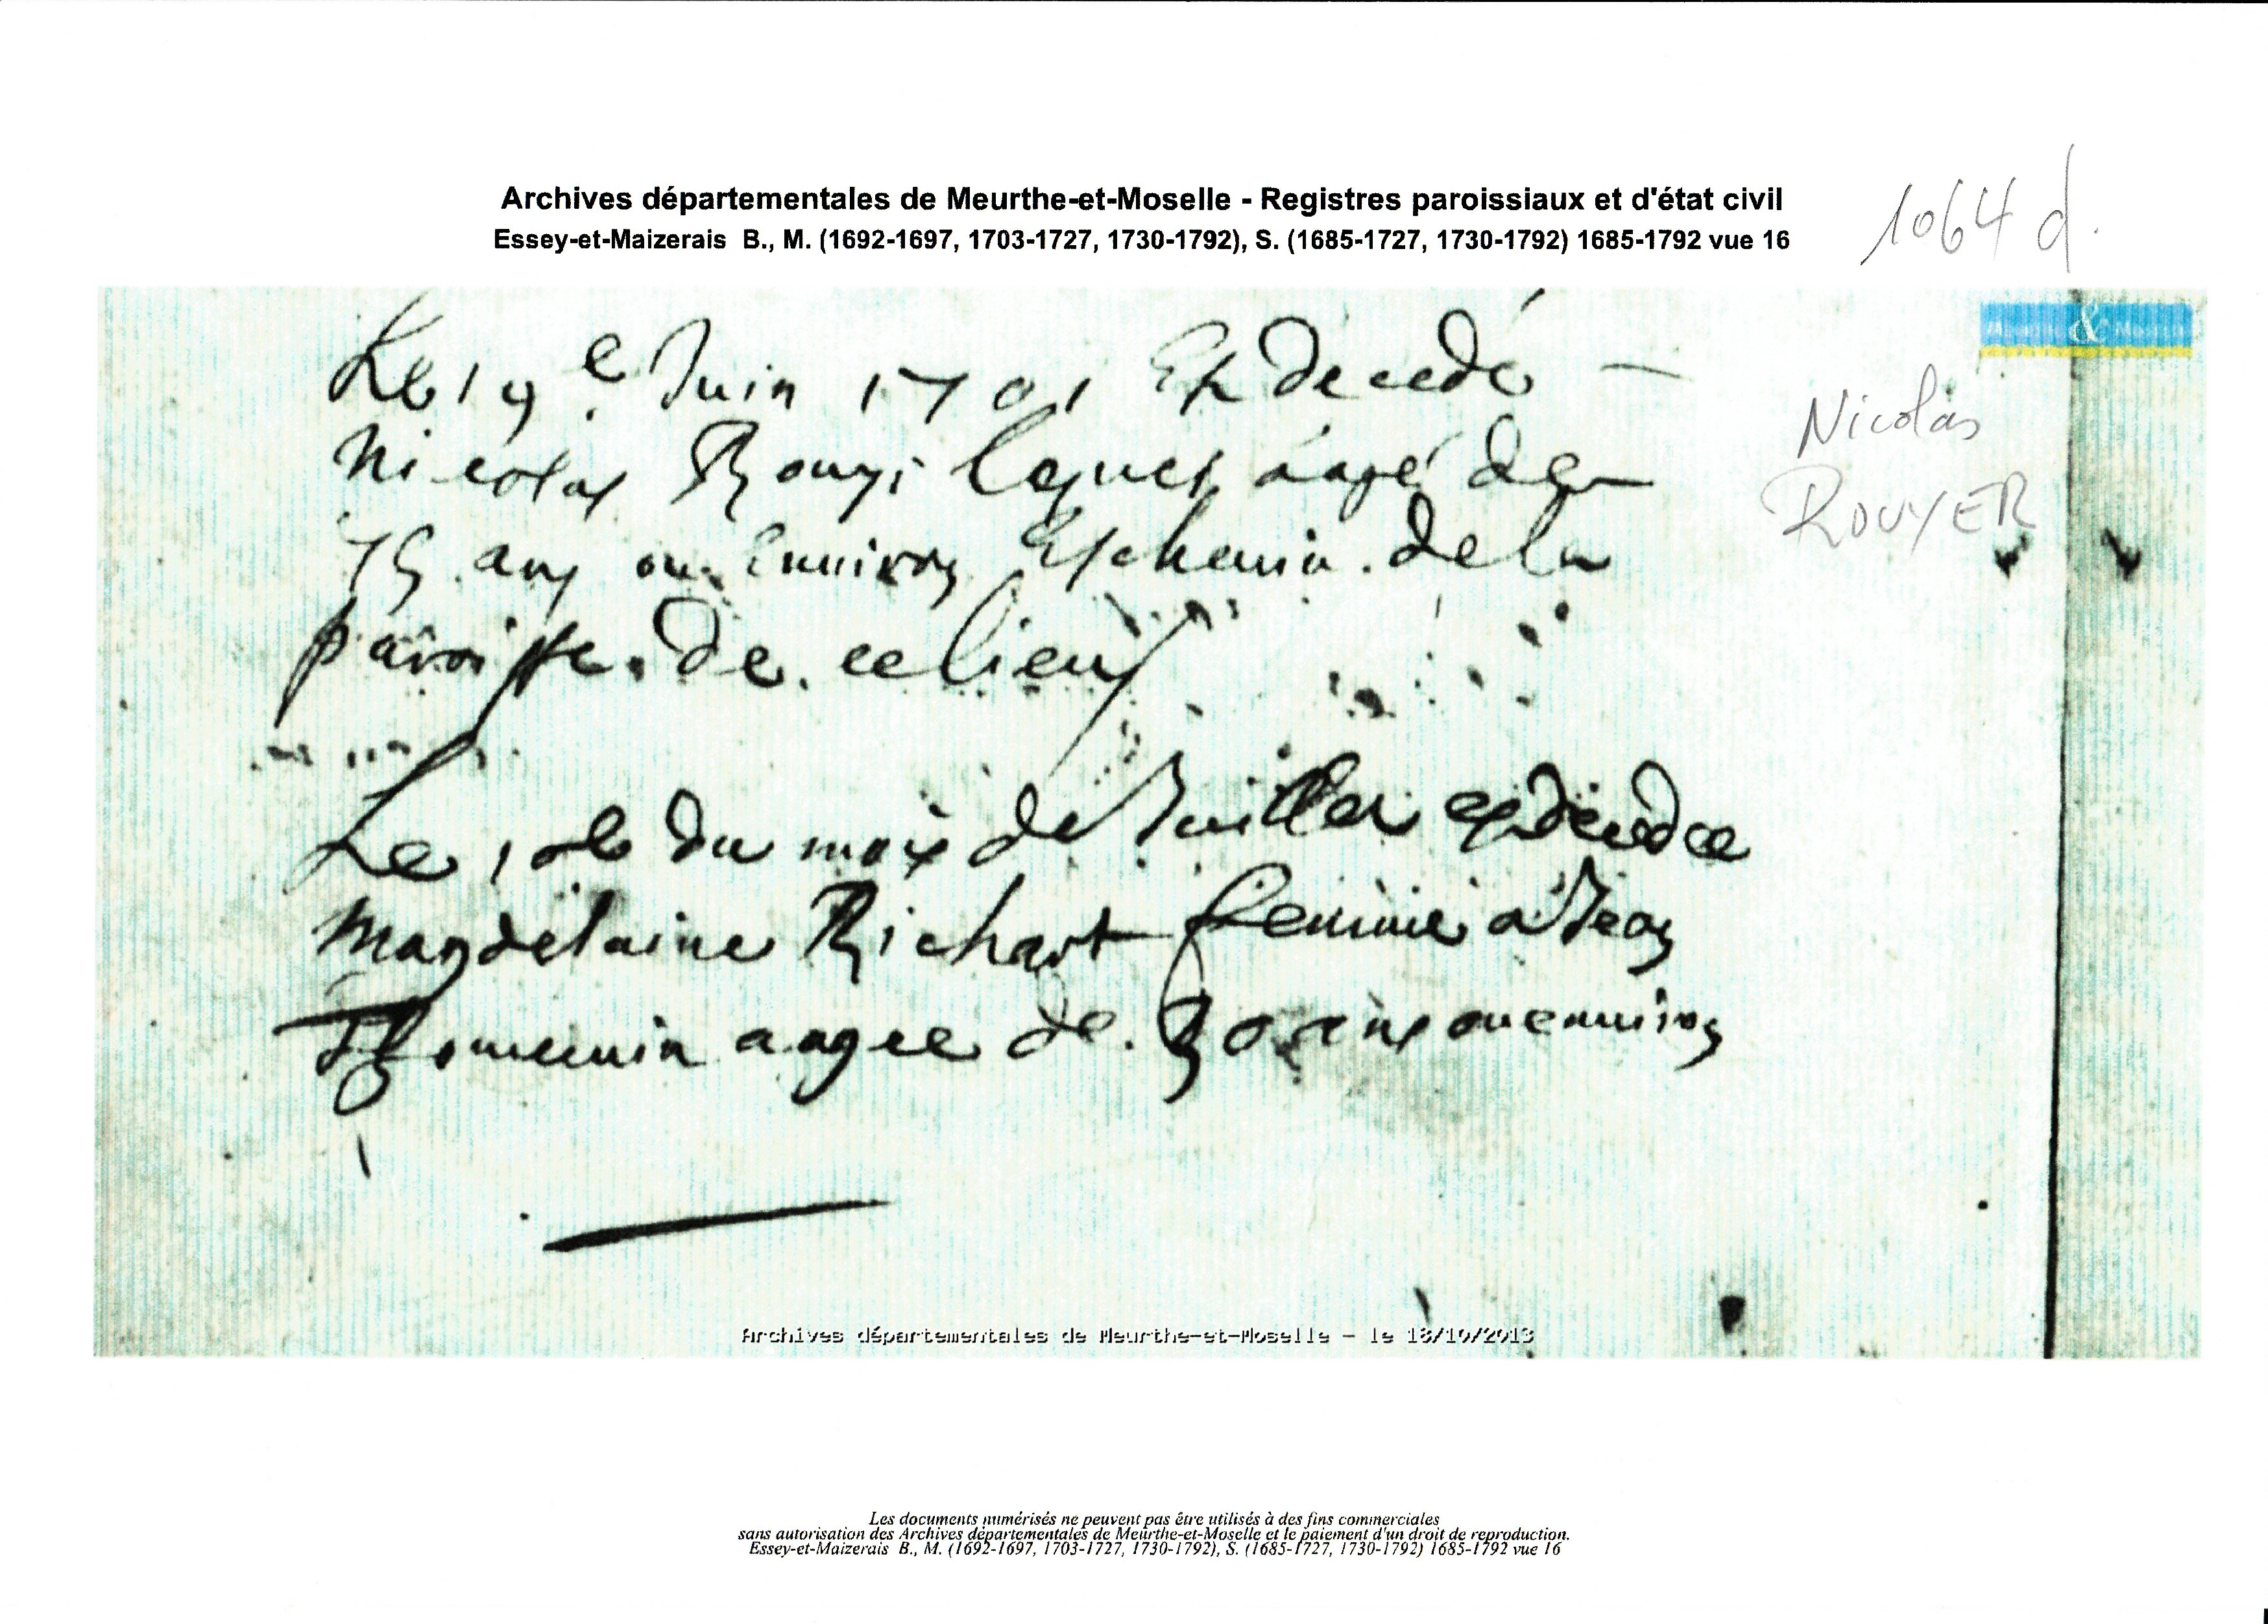 Archives départementales de Meurthe-et-Moselle - Registres paroissiaux et d'état civil
Essey-et-Maizerais B., M. (1692-1697, 1703-1727, 1730-1792), S. (1685-1727, 1730-1792) 1685-1792 vue 16
1064 d.
Le 19e Juin 1701 Est decedé
Nicolas
ROUYER
Nicolas Rouyi aagé de
ans ou enuiron Eschauin de la
paroisse de ce lieu
Le 10e du mois de Juillet est decedee
Magdelaine Richart femme a Jean
Thouuenin aagee de 30 ans ou enuiron
Archives départementales de Meurthe-et-Moselle - le 18/10/2013
Les documents numérisés ne peuvent pas être utilisés à des fins commerciales
sans autorisation des Archives départementales de Meurthe-et-Moselle et le paiement d'un droit de reproduction.
Essey-et-Maizerais B., M. (1692-1697, 1703-1727, 1730-1792), S. (1685-1727, 1730-1792) 1685-1792 vue 16